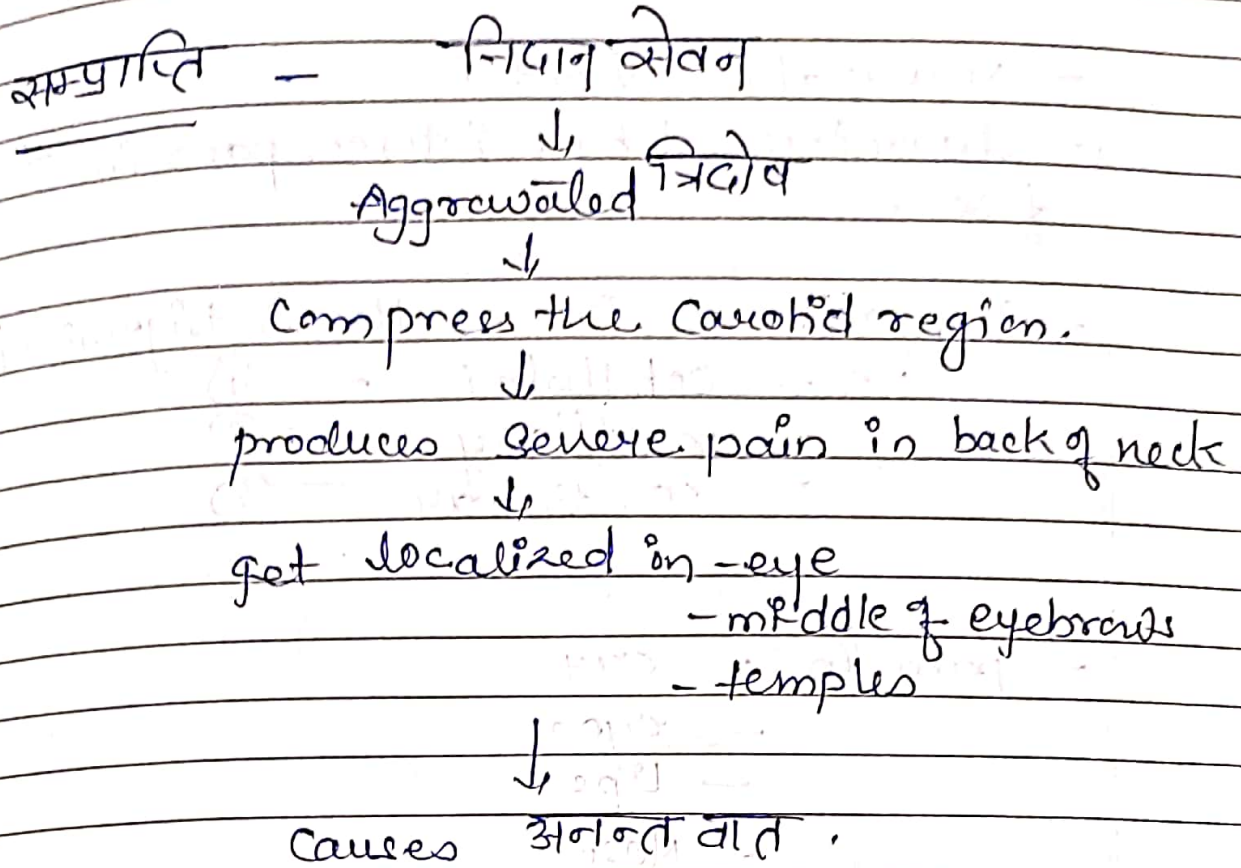 सम्प्राप्ति – निदान सेवन
↓
Aggrawated त्रिदोष
↓
Compress the Carotid region.
↓
produces severe pain in back of neck
↓
get localized in - eye
- middle of eyebrows
- temples
↓
causes अनन्त वात .